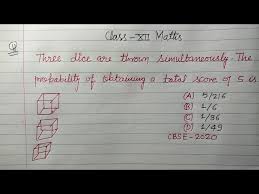 Class-XII Maths
Q
Three dice are thrown simultaneously. The
probability of obtaining a total score of 5 is
(A) 5/216
(B) 1/6
(C) 1/36
(D) 1/49
CBSE-2020